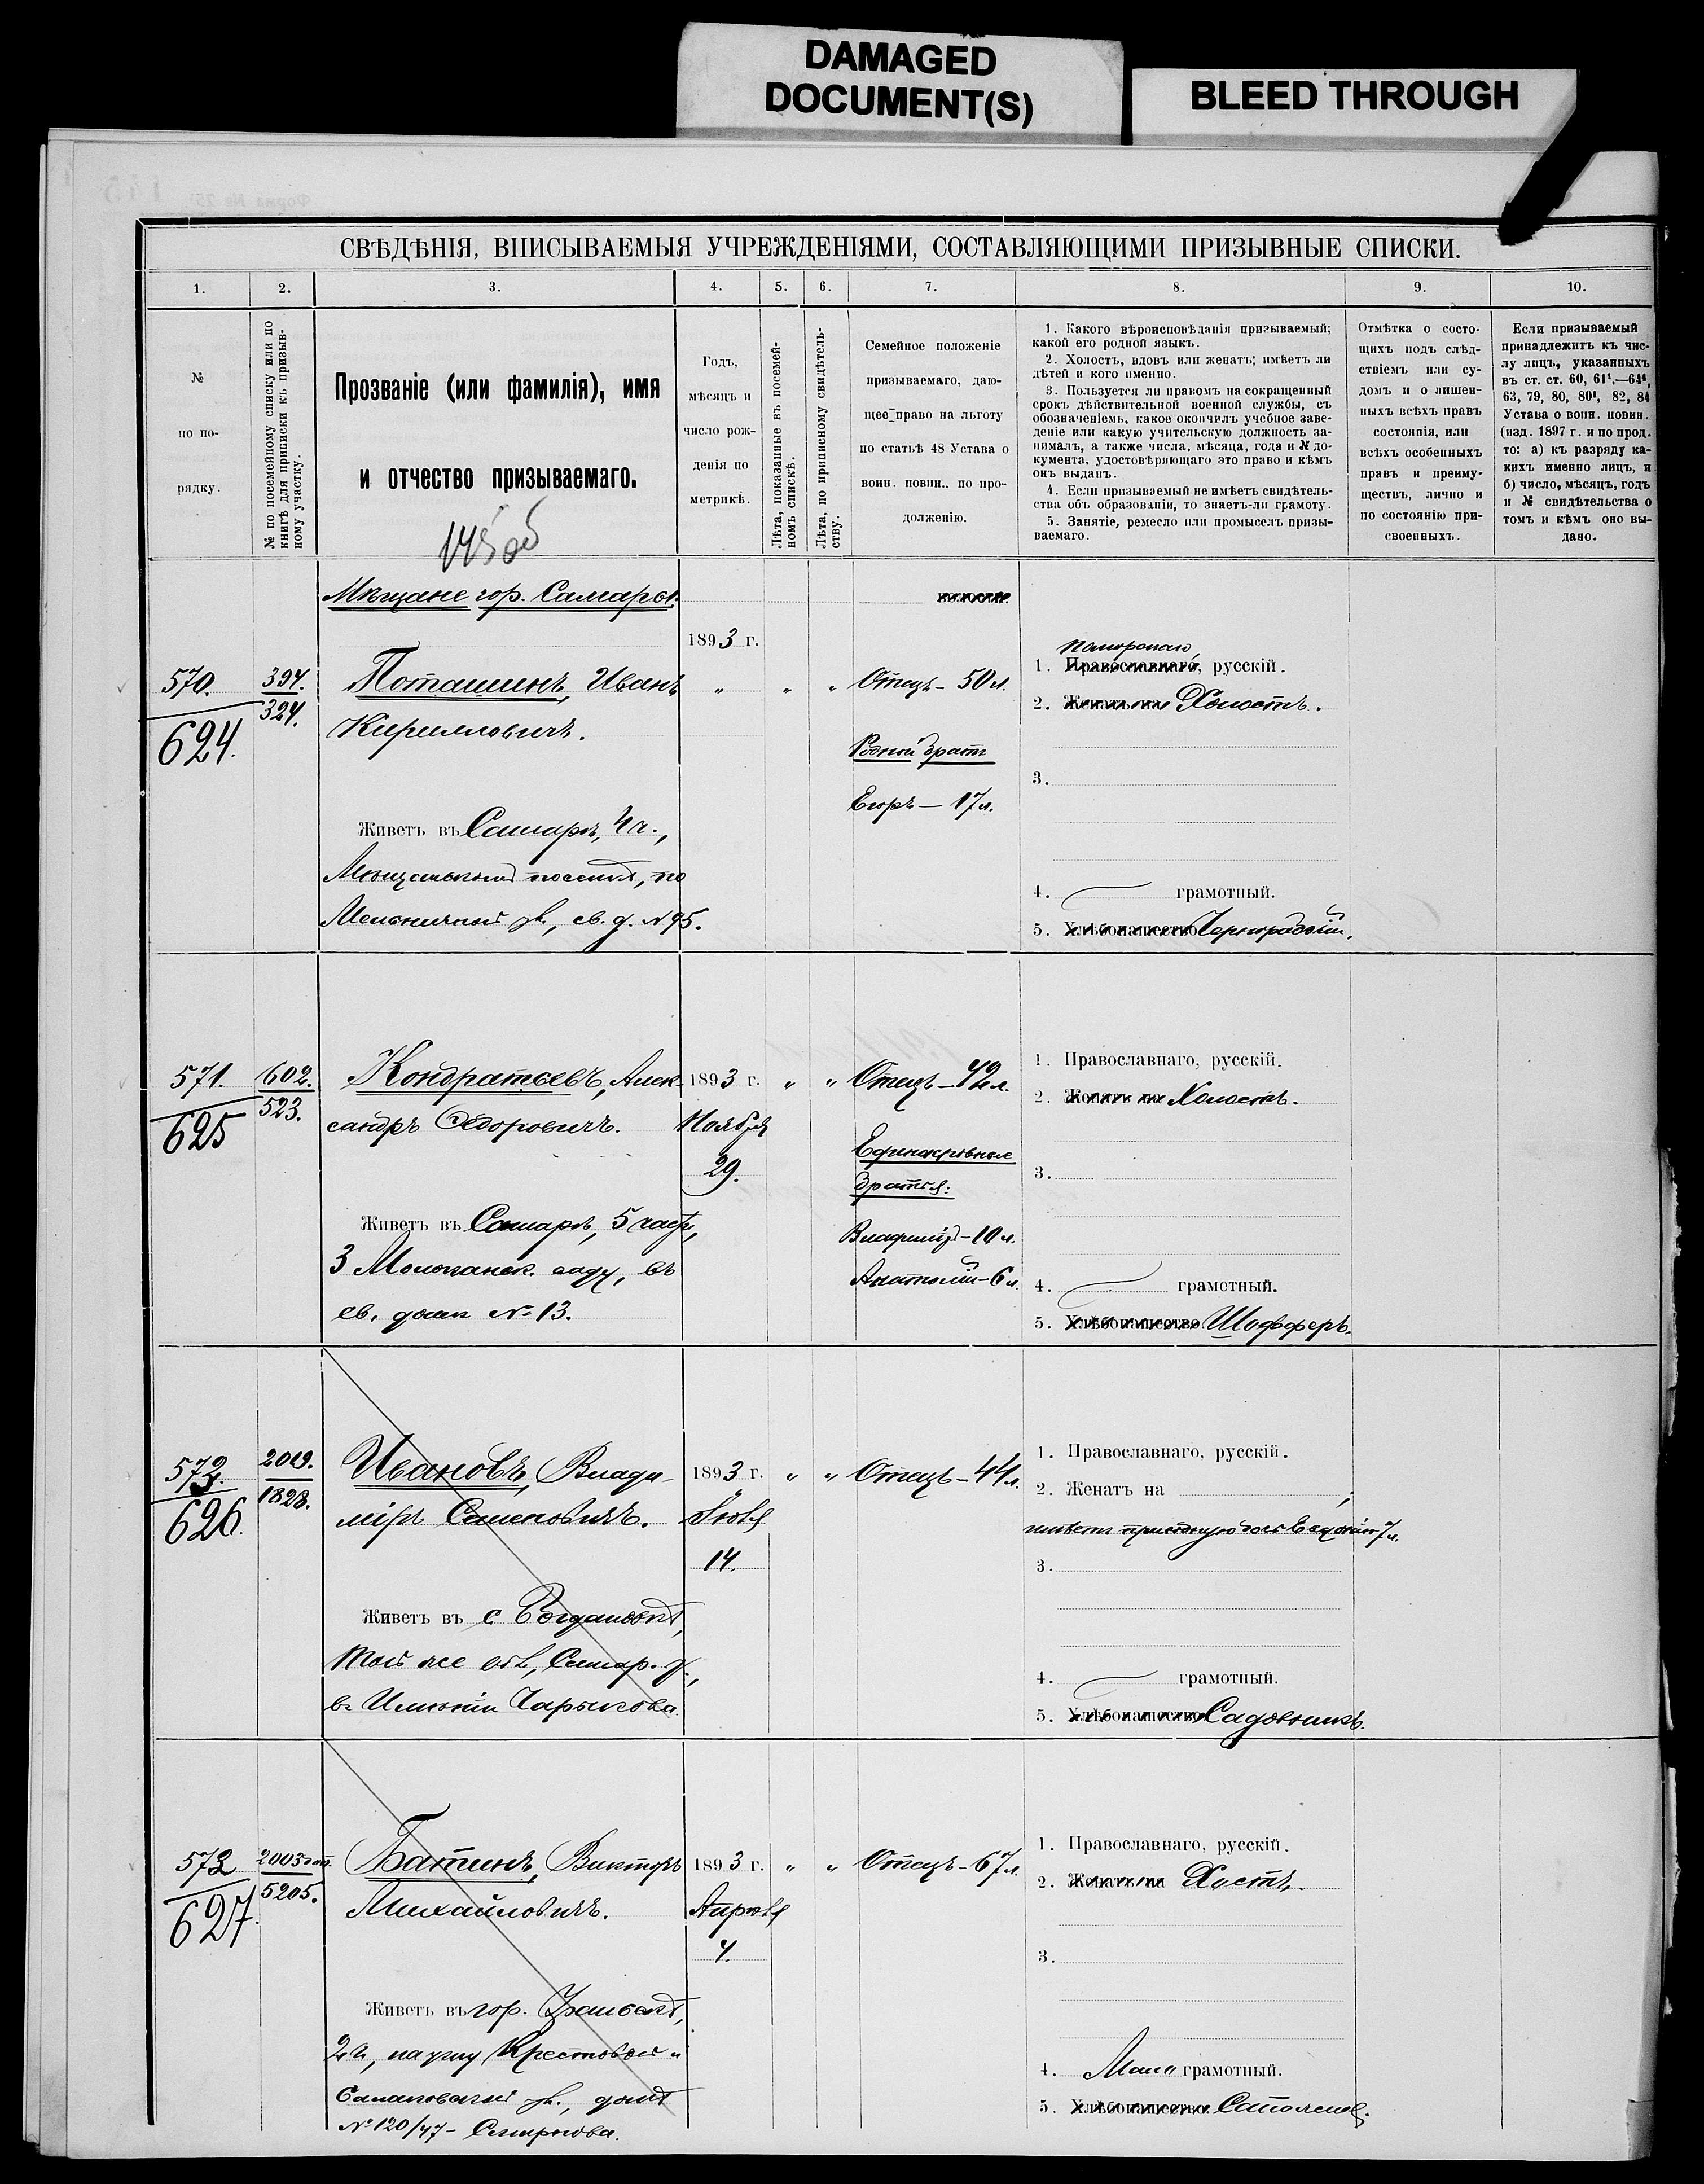 DAMAGED
DOCUMENT(S)
BLEED THROUGH
СВѢДѢНІЯ, ВПИСЫВАЕМЫЯ УЧРЕЖДЕНІЯМИ, СОСТАВЛЯЮЩИМИ ПРИЗЫВНЫЕ СПИСКИ.
1. 2. 3. 4. 5. 6. 7. 8. 9. 10.
№
по по-
рядку.
№ по посемейному списку или по
книгѣ для приписки къ призыв-
ному участку.
Прозваніе (или фамилія), имя
и отчество призываемаго.
Годъ,
мѣсяцъ и
число рож-
денія по
метрикѣ.
Лѣта, показанные въ посемей-
номъ спискѣ.
Лѣта, по приписному свидѣтель-
ству.
Семейное положеніе
призываемаго, даю-
щее право на льготу
по статьѣ 48 Устава о
воин. повин.. по про-
долженію.
1. Какого вѣроисповѣданія призываемый;
какой его родной языкъ.
2. Холостъ, вдовъ или женатъ; имѣетъ ли
дѣтей и кого именно.
3. Пользуется ли правомъ на сокращенный
срокъ дѣйствительной военной службы, съ
обозначеніемъ, какое окончилъ учебное заве-
деніе или какую учительскую должность за-
нималъ, а также числа, мѣсяца, года и № до-
кумента, удостовѣряющаго это право и кѣмъ
онъ выданъ.
4. Если призываемый не имѣетъ свидѣтель-
ства объ образованіи, то знаетъ-ли грамоту.
5. Занятіе, ремесло или промыселъ призы-
ваемаго.
Отмѣтка о состо-
щихъ подъ слѣд-
ствіемъ или су-
домъ и о лишен-
ныхъ всѣхъ правъ
состоянія, или
всѣхъ особенныхъ
правъ и преиму-
ществъ, лично и
по состоянію при-
своенныхъ.
Если призываемый
принадлежитъ къ чис-
лу лицъ, указанныхъ
въ ст. ст. 60, 61¹,—64⁴,
63, 79, 80, 80¹, 82, 84
Устава о воин. повин.
(изд. 1897 г. и по прод.
то: а) къ разряду ка-
кихъ именно лицъ, и
б) число, мѣсяцъ, годъ
и № свидѣтельства о
томъ и кѣмъ оно вы-
дано.
Мѣщане гор. Самары.
570.
624.
394.
324.
Поташинъ, Иванъ
Кирилловичъ.
Живетъ въ Самарѣ, 4 ч.,
Мѣщанскомъ поселкѣ, по
Мельничной ул., св. д. № 95.
1893 г.
„ „ „
Отецъ - 50 л.
Родной братъ
Егоръ — 17 л.
Поморскаго,
1. Православнаго, русскій.
2. Женатъ на Холостъ.
3.
4. грамотный.
5. Хлѣбопашество Чернорабочій.
571.
625
602.
523.
Кондратьевъ, Алек-
сандръ Ѳедоровичъ.
Живетъ въ Самарѣ, 5 части,
3 Молоканск. саду, въ
св. домѣ № 13.
1893 г.
Ноября
29.
„ „
Отецъ - 42 л.
Единокровные
братья:
Владиміръ - 10 л.
Анатолій - 6 л.
1. Православнаго, русскій.
2. Женатъ на Холостъ.
3.
4. грамотный.
5. Хлѣбопашество Шофферъ.
572.
626.
2019.
1828.
Ивановъ, Влади-
міръ Семеновичъ.
Живетъ въ с Богдановкѣ,
той же вол., Самар. у.,
въ Имѣніи Чарыкова.
1893 г.
Іюля
14.
„ „
Отецъ - 44 л.
1. Православнаго, русскій.
2. Женатъ на
3.
4. грамотный.
5. Хлѣбопашество Садовникъ.
573
627.
2003
5205.
Батинъ, Викторъ
Михайловичъ.
Живетъ въ гор.
2 ч, на углу Крестовой и
ул., домъ
№ 120/47 - Смирнова.
1893 г.
Апрѣля
4.
„ „
Отецъ - 67 л.
1. Православнаго, русскій.
2. Женатъ на Хостъ.
3.
4. Мало грамотный.
5. Хлѣбопашество Сапожн.